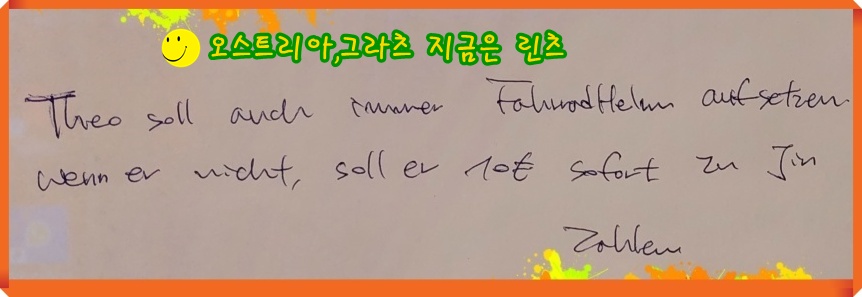 오스트리아,그라츠 지금은 린츠
Theo soll auch immer Fahrradhelm aufsetzen
wenn er nicht, soll er 10€ sofort zu Jin
Zahlen